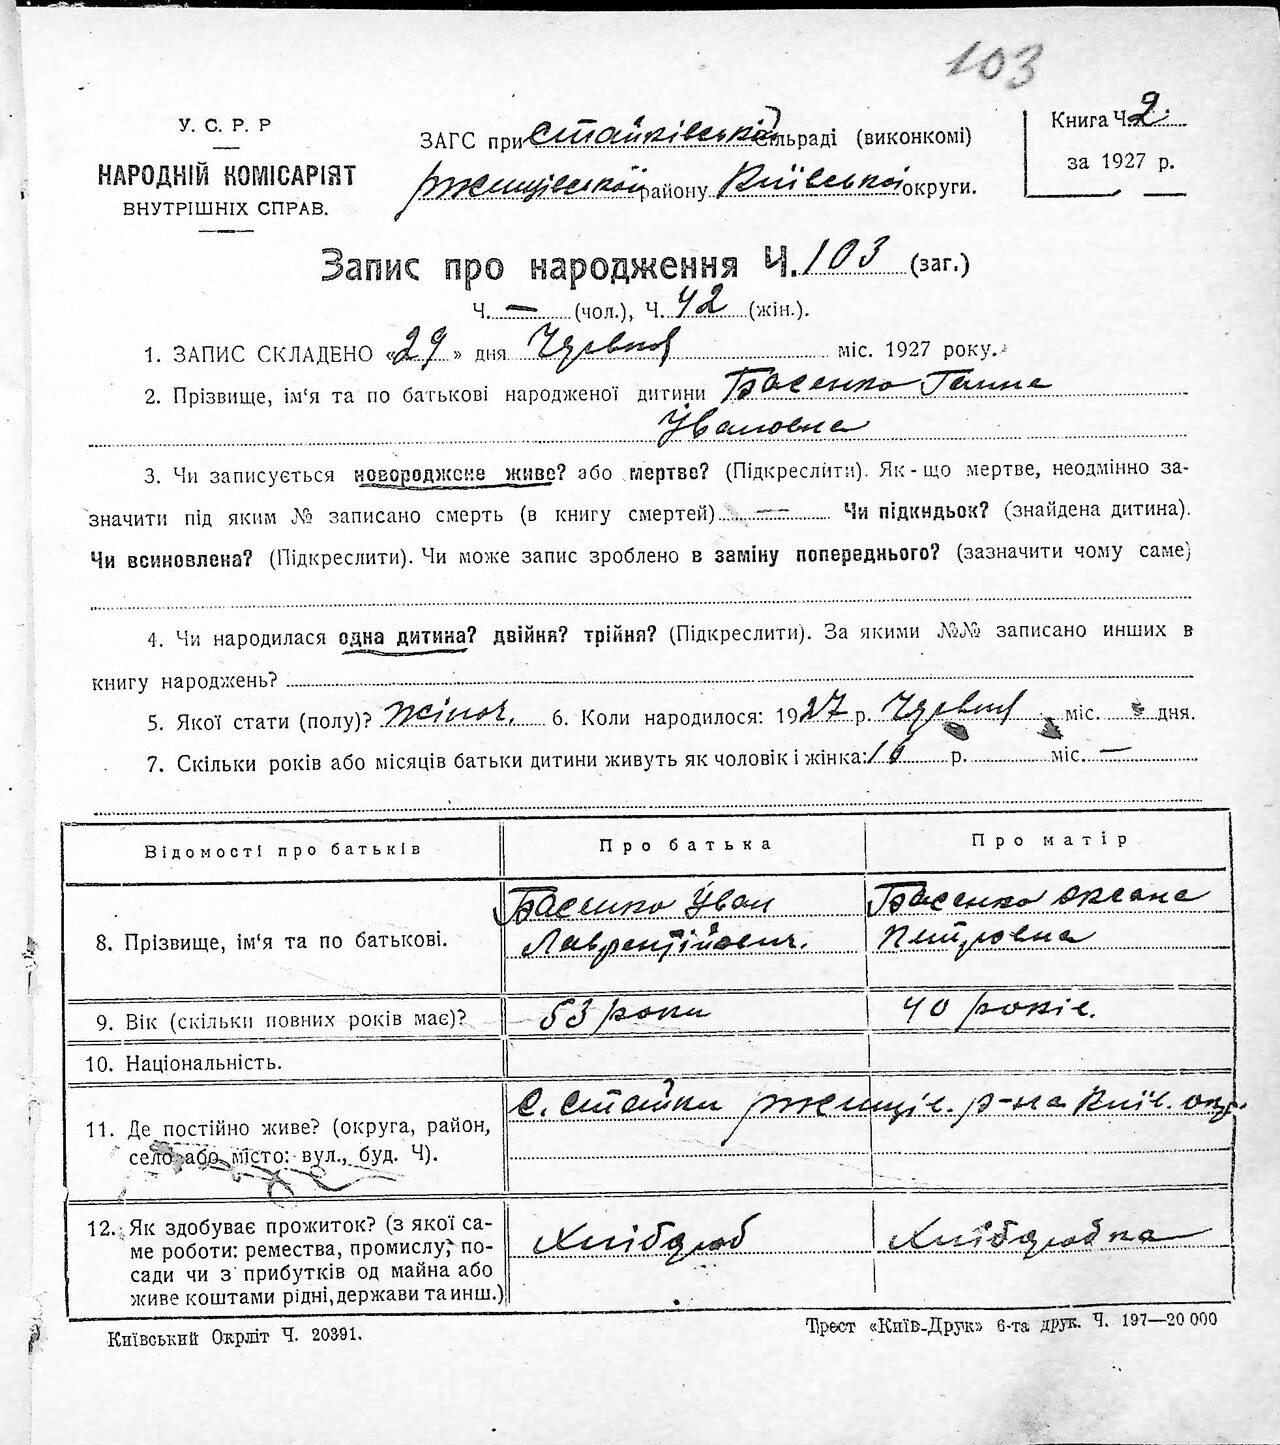 103
У. С. Р. Р
НАРОДНІЙ КОМІСАРІЯТ
ВНУТРІШНІХ СПРАВ.
ЗАГС при Стайківській сільраді (виконкомі)
Ржищівської району Київської округи.
Книга Ч. 2
за 1927 р.
Запис про народження Ч. 103 (заг.)
Ч. — (чол.), Ч. 42 (жін.).
1. ЗАПИС СКЛАДЕНО «29» дня Червня міс. 1927 року.
2. Прізвище, ім'я та по батькові народженої дитини Басенко Ганна
Івановна
3. Чи записується новороджене живе? або мертве? (Підкреслити). Як-що мертве, неодмінно за-
значити під яким № записано смерть (в книгу смертей) — Чи підкидьок? (знайдена дитина).
Чи всиновлена? (Підкреслити). Чи може запис зроблено в заміну попереднього? (зазначити чому саме)
4. Чи народилася одна дитина? двійня? трійня? (Підкреслити). За якими №№ записано инших в
книгу народжень?
5. Якої стати (полу)? жіноч. 6. Коли народилося: 1927 р. Червня міс. дня.
7. Скільки років або місяців батьки дитини живуть як чоловік і жінка: 10 р. міс. —
Відомості про батьків Про батька Про матір
8. Прізвище, ім'я та по батькові. Басенко Іван Лаврентійович. Басенко Оксана Петровна
9. Вік (скільки повних років має)? 53 роки 40 років.
10. Національність.
11. Де постійно живе? (округа, район, село або місто: вул., буд. Ч). С. Стайки Ржищів. р-на Київ. окр.
12. Як здобуває прожиток? (з якої са-
ме роботи: ремества, промислу, по-
сади чи з прибутків од майна або
живе коштами рідні, держави та инш.) Хлібороб Хліборобка
Київський Окрліт Ч. 20391.
Трест «Київ-Друк» 6-та друк. Ч. 197—20 000